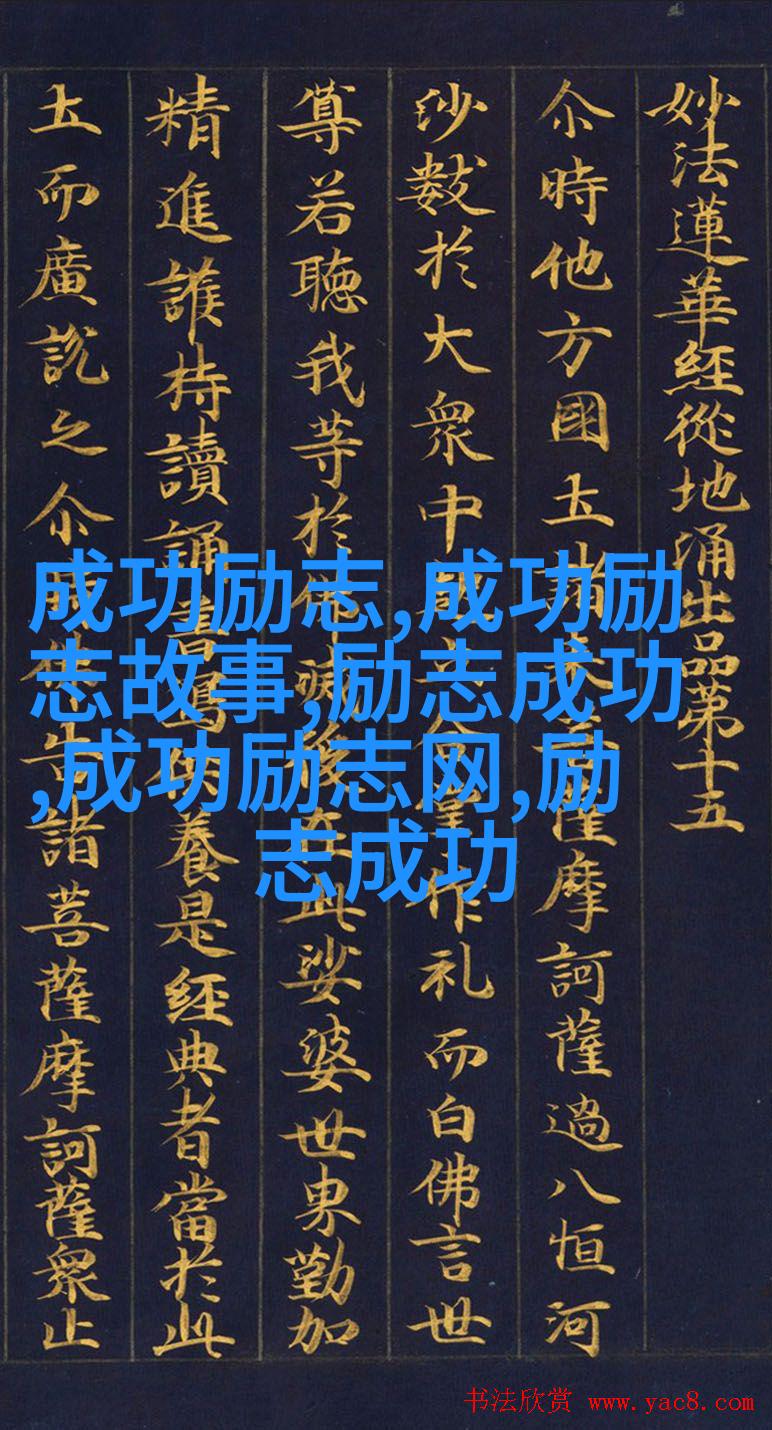 妙法蓮華經從地涌出品第十五
尒時他方國土諸來薩摩訶薩過八恒河
沙數於大衆中合掌作礼而白佛言世
尊若聽我等於佛滅後在此娑婆世界勤加
精進護持讀誦書寫供養是經典者當於此
土而廣說之尒時佛告諸菩薩摩訶薩衆止
成功励志,成功励
志故事,励志成功
,成功励志网,励
志成功
书法欣赏 www.yac8.com